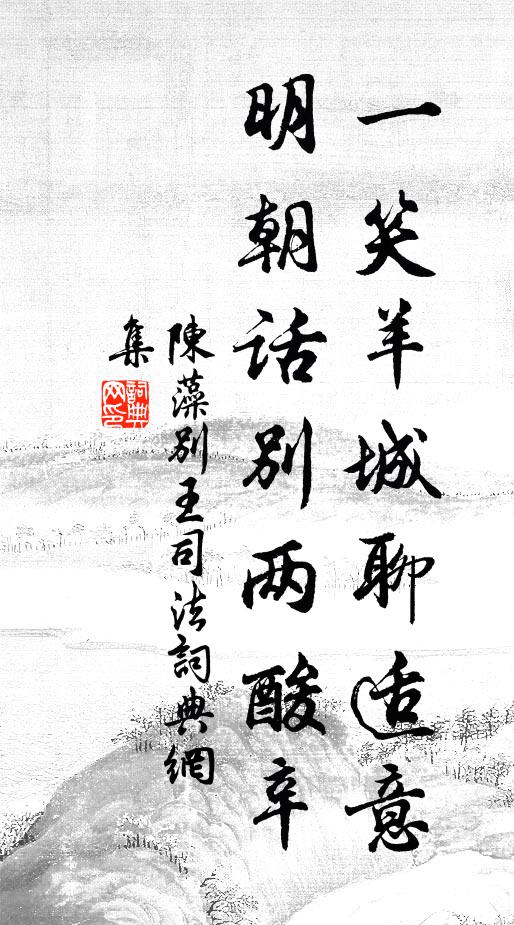 一笑羊城聊适意
明朝话别两酸辛
陳藻别王司法詞典網
集
詞典
网印